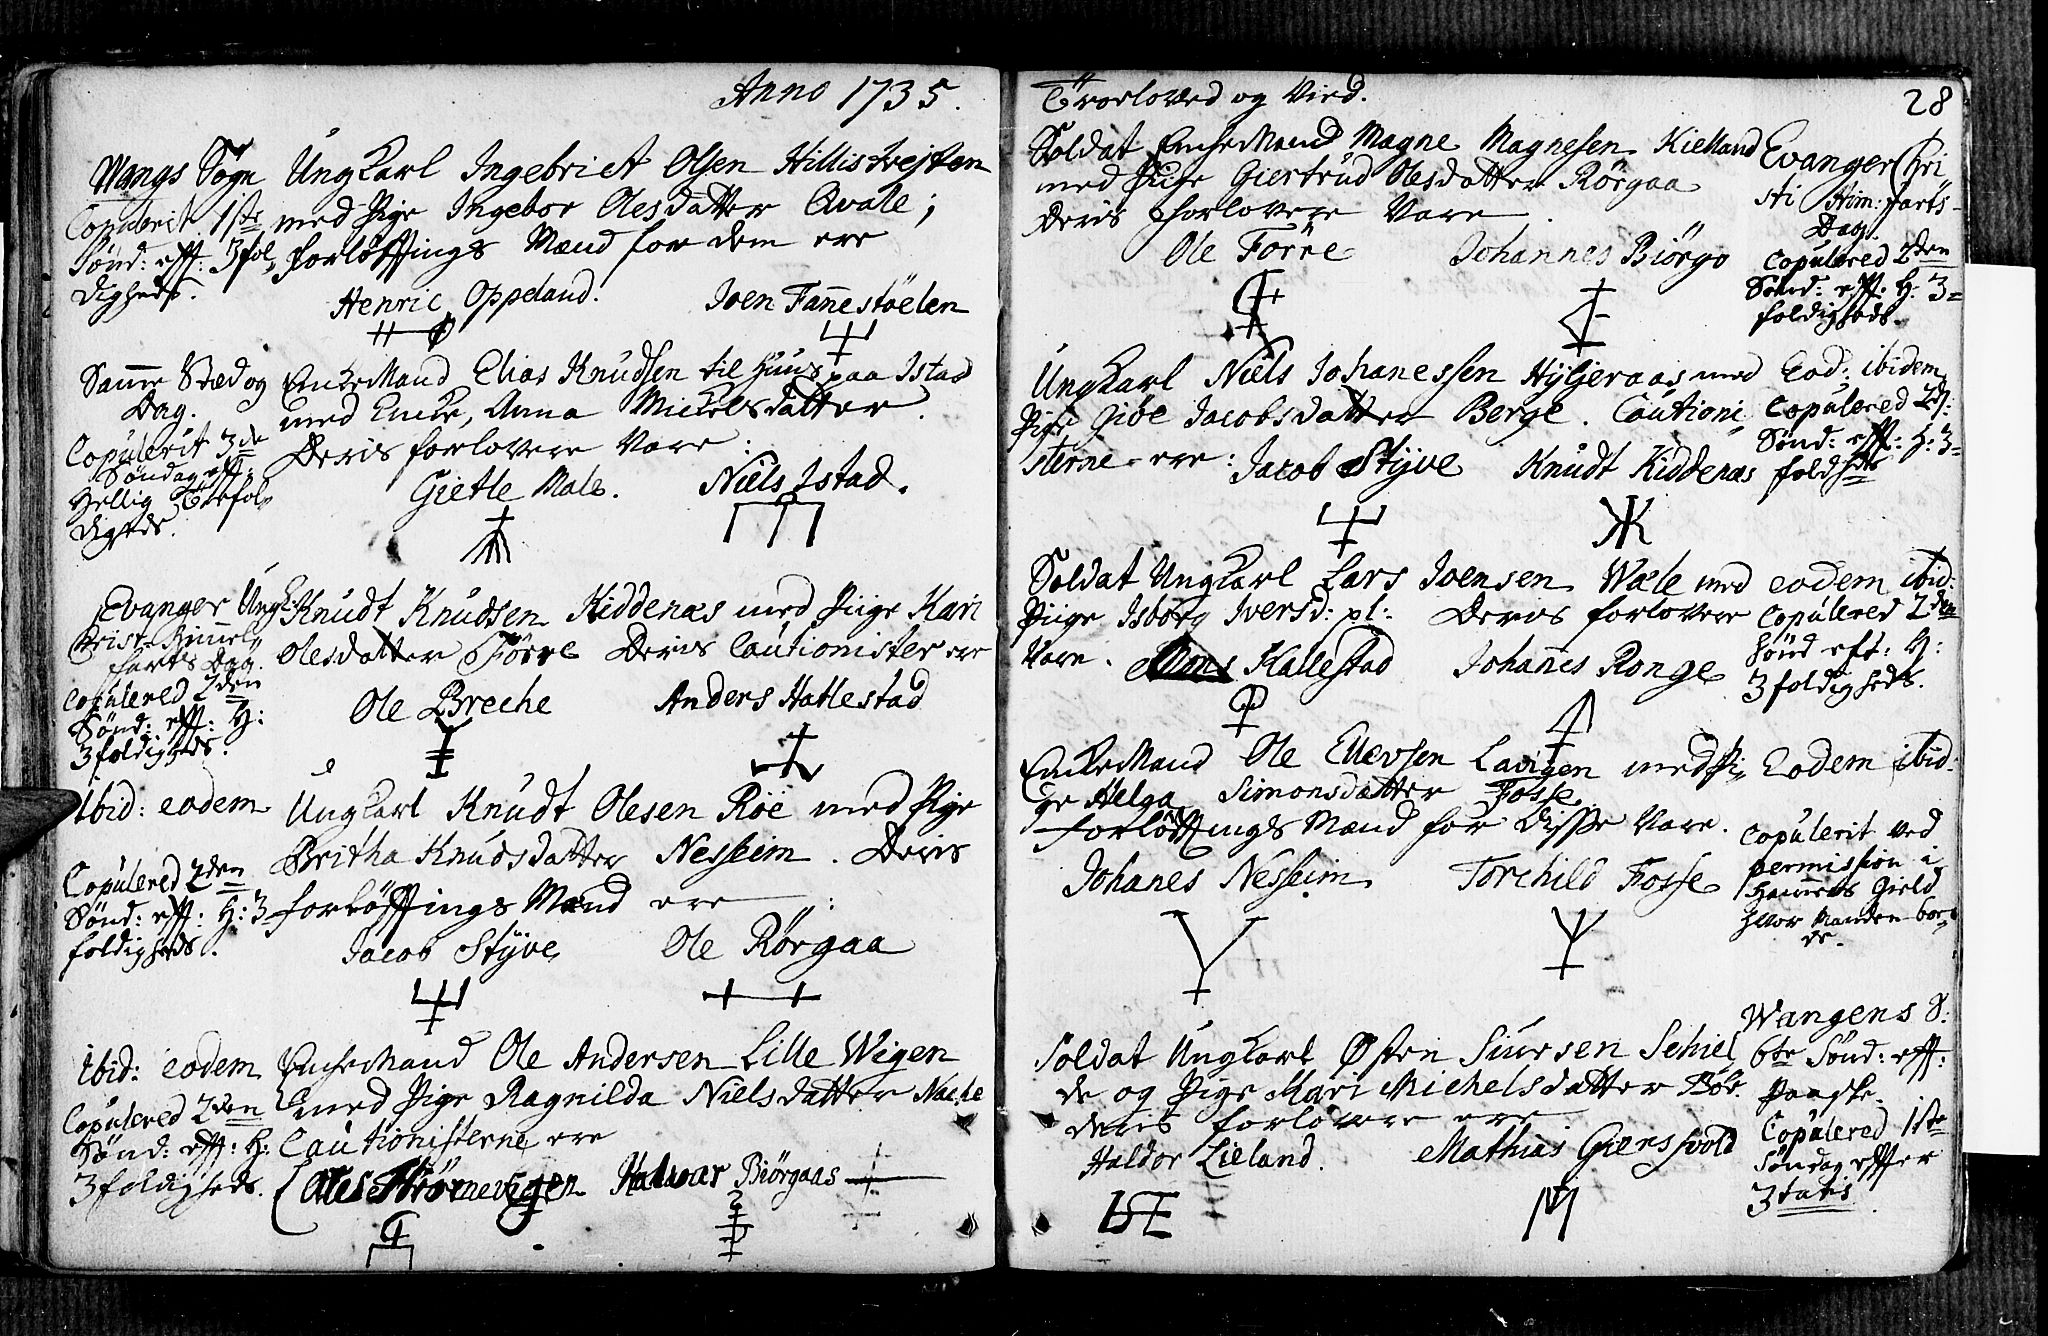 Anno 1735.
Wangs Sogn
Copulerit 1ste
Sönd: eff: 3fol
digheds.
UngKarl Ingebrict Olsen Hillistvejten
med Pige Ingebor Olesdatter Qvale;
forlöffings Mænd for dem ere
Henric Oppeland. Joen Fannestöelen
Samme Stæd og
Dag.
Copulerit 3de
Söndag eff:
Hellig Trefol
digheds.
EnkeMand Elias Knudsen til Huus paa Istad
med Enke, Anna Michelsdatter.
Deris forlovere Vare:
Gietle Male. Niels Istad.
Evanger
Christi Himmel
farts Dag.
Copulered 2den
Sönd: eff: H:
3foldigheds.
UngK: Knudt Knudsen Kiddenæs med Piige Kari
Olesdatter Förre Deris Cautionister ere
Ole Breche Anders Hatlestad
Ibid: eodem
Copulered 2den
Sönd: eff: H: 3
foldigheds.
UngKarl Knudt Olesen Röe med Pige
Britha Knudsdatter Nesseim. Deris
forlöffings Mænd ere:
Jacob Styve Ole Rörgaa
ibid: eodem
Copulered 2den
Sönd: eff: H:
3foldigheds.
EnkeMand Ole Andersen Lille Wigen
med Pige Ragnilda Nielsdatter Næche
Cautionisterne ere
Halvor Biörgaas
Trorloved og Vied.
28
Soldat EnkeMand Magne Magnesen Kielland
med Pige Giertrud Olesdatter Rörgaa
Deris Forlovere Vare.
Ole Förre Johannes Biörgo
Evanger Chri
sti Him: farts
Dag.
Copulered 2den
Sönd: eff: H: 3=
foldigheds.
UngKarl Niels Johanessen Hyljeraas med
Pige Giöe Jacobsdatter Berge. Cautioni
sterne ere: Jacob Styve Knudt Kiddenæs
Eod: ibidem
Copulered 2d:
Sönd: eff: H: 3=
foldhds
Soldat UngKarl Lars Joensen Wæle med
Piige Isborg Iversd: pl: Deris forlovere
Vare. Mons Kallestad Johannes Ronge
eodem ibid:
Copulered 2den
Sönd eft: H:
3foldigheds.
EnkeMand Ole Ellevsen Lavigen med Pi
ge Helga Simonsdatter Fosse
forlöffings Mænd for Disse Vare.
Johanes Nesseim Torchild Fosse
Eodem ibid:
Copulerit ved
permission i
Hammers Gield
hvor Manden boe
de.
Soldat UngKarl Östen Siursen Schiel
de og Pige Mari Michelsdatter Böe.
deris forlovere ere
Haldor Lieland. Mathias Giersvold
Wangens S:
6te Sönd: eff:
Paaske.
Copulered 1ste
Söndag effter
3tatis